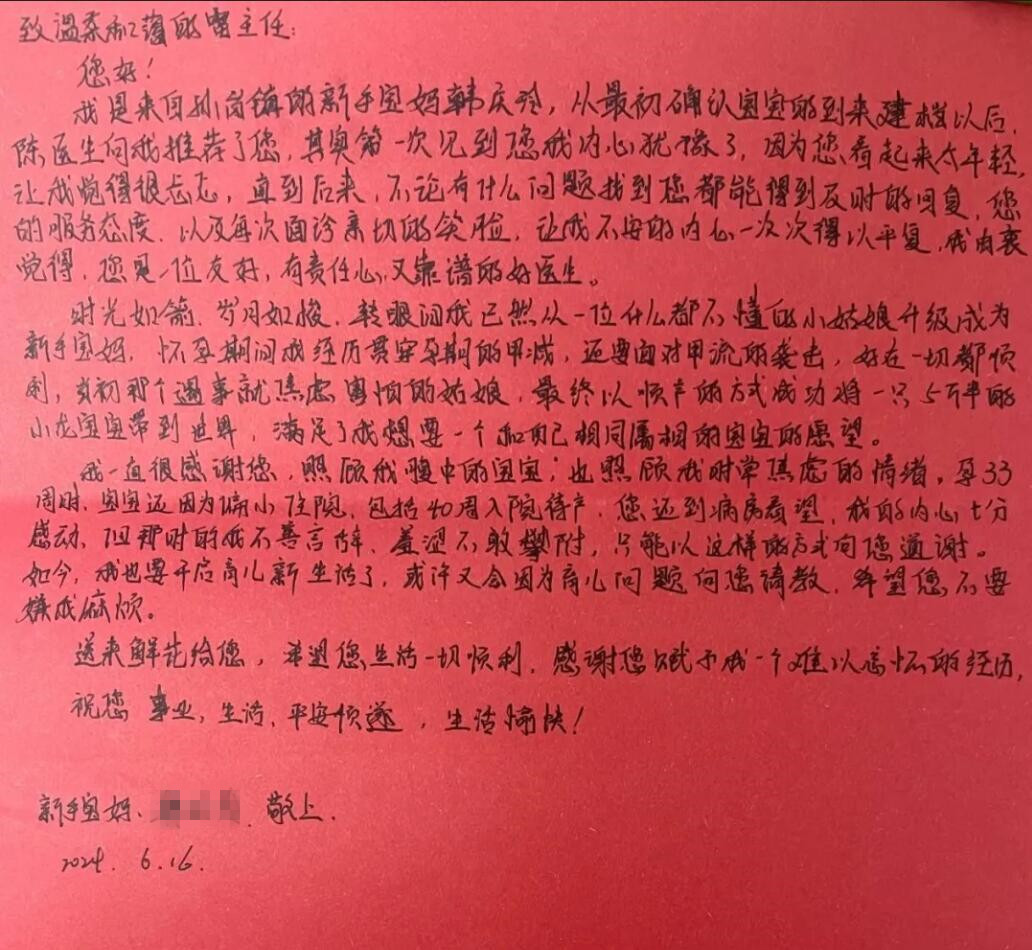 致温柔和蔼的曹主任：
您好！
我是来自孙岗镇的新手宝妈韩庆玲，从最初确认宝宝的到来建档以后，
陈医生向我推荐了您，其实第一次见到您我内心犹豫了，因为您看起来太年轻，
让我觉得很忐忑，直到后来，不论有什么问题找到您都能得到及时的回复，您
的服务态度，以及每次面诊亲切的笑脸，让我不安的内心一次次得以平复，我由衷
觉得，您是一位友好，有责任心，又靠谱的好医生。
时光如箭、岁月如梭，转眼间我已然从一位什么都不懂的小姑娘升级成为
新手宝妈，怀孕期间我经历贯穿孕期的甲减，还要面对甲流的袭击，好在一切都顺
利，当初那个遇事就焦虑害怕的姑娘，最终以顺产的方式成功将一只5斤半的
小龙宝宝带到世界，满足了我想要一个和自己相同属相的宝宝的愿望。
我一直很感谢您，照顾我腹中的宝宝；也照顾我时常焦虑的情绪。孕33
周时，宝宝还因为偏小住院，包括40周入院待产，您还到病房看望，我的内心十分
感动，但那时的我不善言辞、羞涩不敢攀附，只能以这样的方式向您道谢。
如今，我也要开启育儿新生活了，或许又会因为育儿问题向您请教，希望您不要
嫌我麻烦。
送来鲜花给您，希望您生活一切顺利，感谢您赋予我一个难以忘怀的经历，
祝您 事业，生活、平安顺遂，生活愉快！
新手宝妈、 敬上.
2024. 6.16.